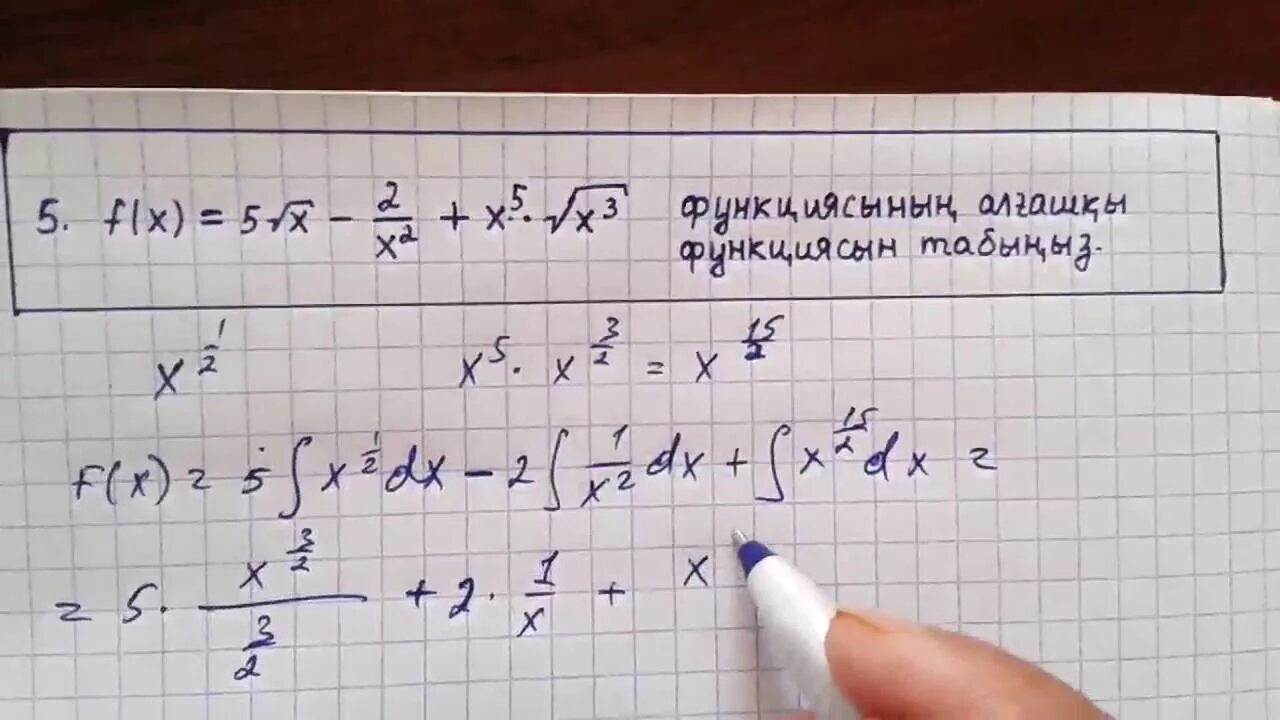 5. f(x) = 5√x − 2/x² + x⁵ · √x³ функциясының алғашқы
функциясын табыңыз.
x^(1/2) x⁵ · x^(3/2) = x^(15/2)
F(x) = 5∫x^(1/2)dx − 2∫1/x² dx + ∫x^(15/2)dx =
= 5 · x^(3/2)/(3/2) + 2 · 1/x + x